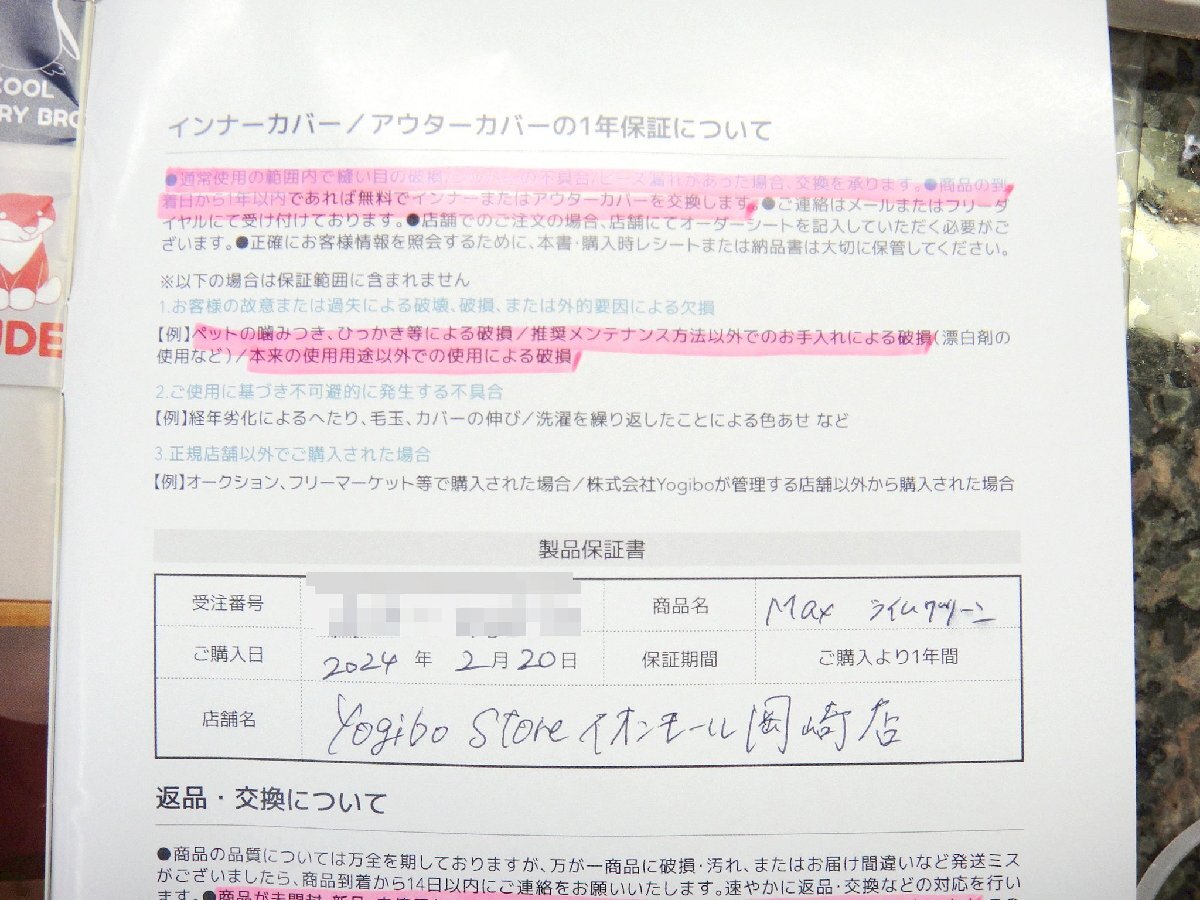 COOL
RY BRO
UDE
インナーカバー／アウターカバーの1年保証について
●通常使用の範囲内で縫い目の破損/ジッパーの不具合/ビーズ漏れがあった場合、交換を承ります。●商品の到
着日から1年以内であれば無料でインナーまたはアウターカバーを交換します。●ご連絡はメールまたはフリーダ
イヤルにて受け付けております。●店舗でのご注文の場合、店舗にてオーダーシートを記入していただく必要がご
ざいます。●正確にお客様情報を照会するために、本書・購入時レシートまたは納品書は大切に保管してください。
※以下の場合は保証範囲に含まれません
1.お客様の故意または過失による破壊、破損、または外的要因による欠損
【例】ペットの噛みつき、ひっかき等による破損／推奨メンテナンス方法以外でのお手入れによる破損(漂白剤の
使用など)／本来の使用用途以外での使用による破損
2.ご使用に基づき不可避的に発生する不具合
【例】経年劣化によるへたり、毛玉、カバーの伸び／洗濯を繰り返したことによる色あせ など
3.正規店舗以外でご購入された場合
【例】オークション、フリーマーケット等で購入された場合／株式会社Yogiboが管理する店舗以外から購入された場合
製品保証書
受注番号
商品名 Max ライムグリーン
ご購入日 2024 年 2月20日 保証期間 ご購入より1年間
店舗名 Yogibo Store イオンモール岡崎店
返品・交換について
●商品の品質については万全を期しておりますが、万が一商品に破損・汚れ、またはお届け間違いなど発送ミス
がございましたら、商品到着から14日以内にご連絡をお願いいたします。速やかに返品・交換などの対応を行い
ます。●商品が未開封・新品